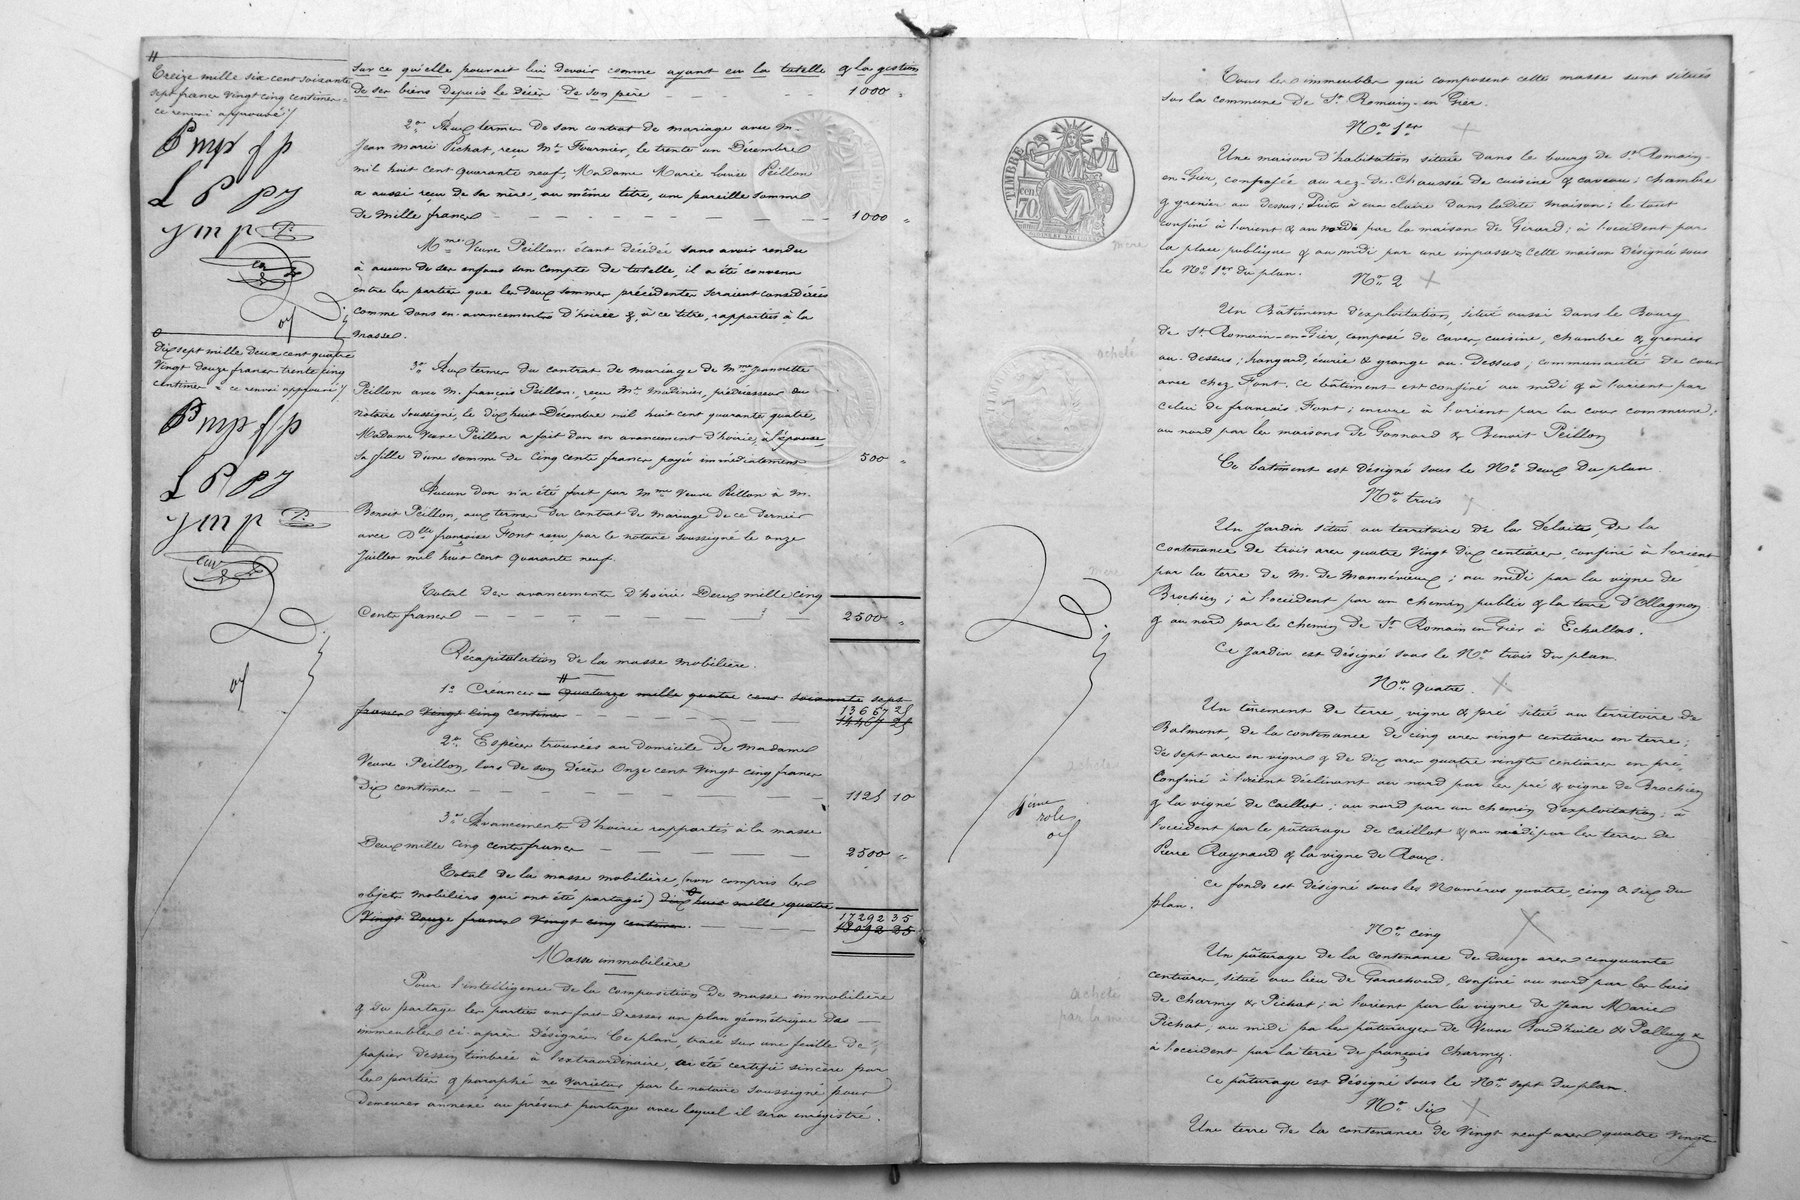 #
Treize mille six cent soixante
sept francs vingt cinq centimes
ce renvoi approuvé
P mp f p
L P PJ
J m p P.
Dix sept mille deux cent quatre
vingt douze francs trente cinq
centimes ce renvoi approuvé
P mp f p
L P PJ
J m p P.
sur ce qu'elle pouvait lui devoir comme ayant eu la tutelle & la gestion
de ses biens depuis le décès de son père 1000 "
2° Aux termes de son contrat de mariage avec M.
Jean Marie Pichat, reçu Me Fournier, le trente un Décembre
mil huit cent quarante neuf, Madame Marie Louise Peillon
a aussi reçu de sa mère, au même titre, une pareille somme
de mille francs 1000 "
Mme Veuve Peillon étant décédée sans avoir rendu
à aucun de ses enfans son compte de tutelle, il a été convenu
entre les parties que les deux sommes précédentes seraient considérées
comme dons en avancements d'hoirie &, à ce titre, rapportées à la
masse.
3° Aux termes du contrat de mariage de Mme Jeannette
Peillon avec M. françois Peillon reçu Me Madinier, prédécesseur du
notaire soussigné, le dix huit Décembre mil huit cent quarante quatre,
Madame Veuve Peillon a fait don en avancement d'hoirie, à l'épouse
sa fille d'une somme de cinq cents francs payée immédiatement 500 "
Aucun don n'a été fait par Mme Veuve Peillon à M.
Benoit Peillon, aux termes du contrat de mariage de ce dernier
avec Dlle françoise Font reçu par le notaire soussigné le onze
Juillet mil huit cent quarante neuf.
Total des avancements d'hoirie Deux mille cinq
Cents francs 2500 "
Récapitulation de la masse mobilière.
#
1° Créances quatorze mille quatre cent soixante sept
francs vingt cinq centimes 13667 25
14467 25
2° Espèces trouvées au domicile de Madame
Veuve Peillon, lors de son décès Onze cent vingt cinq francs
Dix centimes 1125 10
3° Avancements d'hoirie rapportés à la masse
Deux mille cinq cents francs 2500 "
Total de la masse mobilière, (non compris les
objets mobiliers qui ont été partagés) dix huit mille quatre
Vingt Douze francs Vingt cinq centimes. 17292 35
18092 35
Masse immobilière
Pour l'intelligence de la composition de masse immobilière
& du partage les parties ont fait dresser un plan géométrique des
immeubles ci-après désignés. Ce plan, tracé sur une feuille de
papier dessin timbrée à l'extraordinaire, a été certifié sincère par
les parties & paraphé ne varietur par le notaire soussigné pour
demeurer annexé au présent partage avec lequel il sera enregistré.
TIMBRE
70 cen
mère
acheté
mère
achetée
acheté
par la mère
rôle
Tous les immeubles qui composent cette masse sont situés
sur la commune de St Romain en Gier.
No 1er
Une maison d'habitation située dans le bourg de St Romain-
en-Gier, composée au rez-de-Chaussée de cuisine & caveau; chambre
& grenier au dessus; Puits à eau claire dans ladite maison; le tout
confiné à l'orient & au nord, par la maison de Girard; à l'occident par
la place publique & au midi par une impasse = cette maison désignée sous
le No 1er du plan.
No 2
Un Bâtiment d'exploitation, situé aussi dans le Bourg
de St Romain-en-Gier, composé de caves, cuisine, chambre & grenier
au dessus; hangard, écurie & grange au Dessus; communauté de cour
avec chez Font. Ce bâtiment est confiné au midi & à l'orient par
celui de françois Font; encore à l'orient par la cour commune;
au nord par les maisons de Gonnard & Benoit Peillon
Ce batiment est désigné sous le No deux du plan.
No trois
Un Jardin situé au territoire de la Delaite, de la
contenance de trois ares quatre vingt dix centiares, confiné à l'orient
par la terre de M. de Mannévieux; au midi par la vigne de
Brochien; à l'occident par un chemin public & la terre d'Ollagnon
& au nord par le chemin de St Romain en Gier à Echallas.
Ce Jardin est désigné sous le No trois du plan.
No quatre.
Un tènement de terre, vigne & pré situé au territoire de
Balmont, de la contenance de cinq ares vingt centiares en terre;
de sept ares en vigne & de dix ares quatre vingts centiares en pré.
Confiné à l'orient déclinant au nord par les pré & vigne de Brochien
& la vigne de Caillot; au nord par un chemin d'exploitation; à
l'occident par le pâturage de Caillot & au midi par les terres de
Pierre Raynaud & la vigne de Roux.
Ce fonds est désigné sous les Numéros quatre, cinq & six du
plan.
No cinq
Un pâturage de la contenance de douze ares cinquante
centiares, situé au lieu de Garachoud, confiné au nord par les bois
de Charmy & Pichat; à l'orient par la vigne de Jean Marie
Pichat; au midi par les pâturages de Veuve Boud'huile & Palluy &
à l'occident par la terre de françois Charmy.
Ce pâturage est désigné sous le No sept du plan.
No Six
Une terre de la contenance de Vingt neuf ares quatre vingts